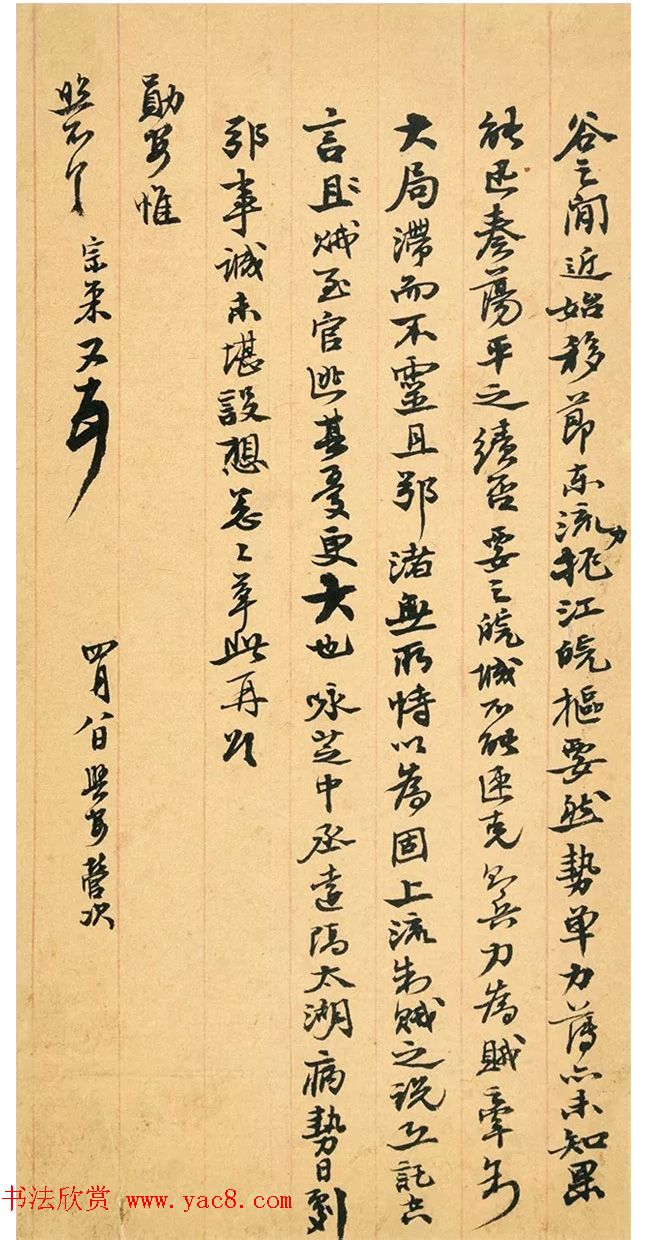 谷之間近始移節東流力扼江皖樞要然勢單力薄亦未知果
能迅奏蕩平之績否要之皖城不能速克則兵力為賊牽制
大局滯而不靈且鄂渚無所恃以為固上流制賊之說亦託空
言賊至官逃其憂更大也咏芝中丞遠隔太湖病勢日劇
鄂事誠未堪設想忽忽草此再頌
勛安惟
照不具 宗棠又頓
四月八日 營次
书法欣赏 www.yac8.com